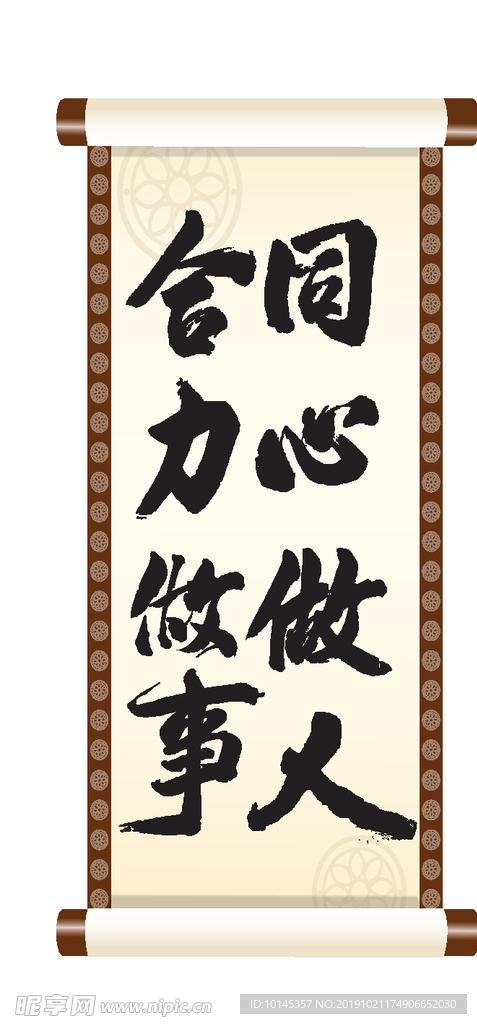 同心做人
合力做事
昵享网 www.nipic.cn
ID:10145357 NO:20191021174906652030